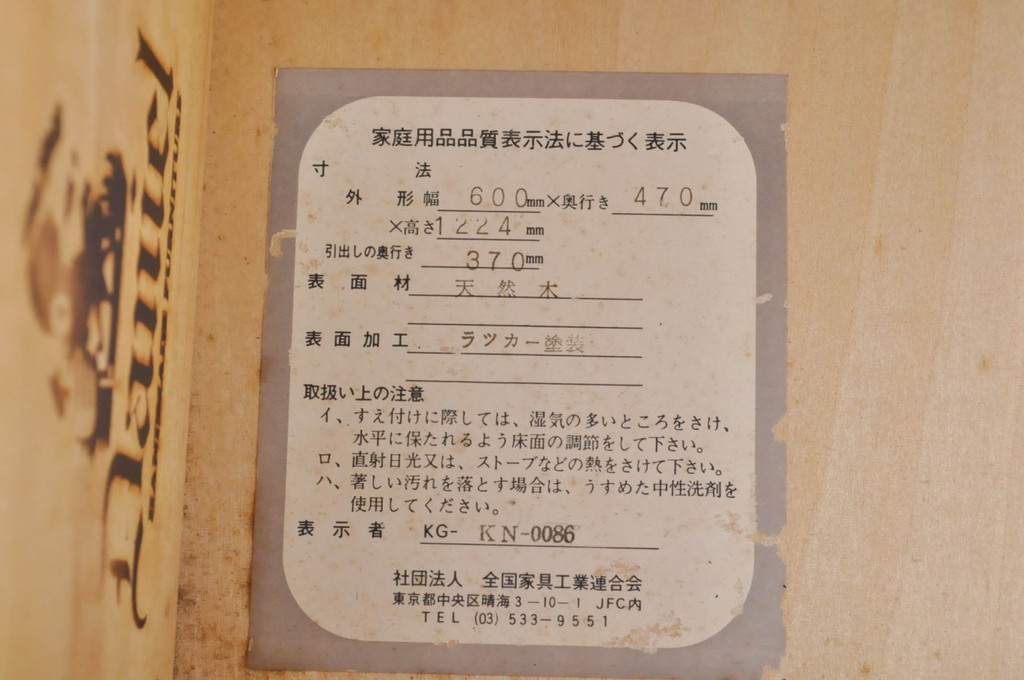 家庭用品品質表示法に基づく表示
寸法
外形幅 600mm×奥行き 470mm
×高さ1224mm
引出しの奥行き 370mm
表面材 天然木
表面加工 ラツカー塗装
取扱い上の注意
イ、すえ付けに際しては、湿気の多いところをさけ、
水平に保たれるよう床面の調節をして下さい。
ロ、直射日光又は、ストーブなどの熱をさけて下さい。
ハ、著しい汚れを落とす場合は、うすめた中性洗剤を
使用してください。
表示者 KG- KN-0086
社団法人 全国家具工業連合会
東京都中央区晴海3-10-1 JFC内
TEL (03) 533-9551